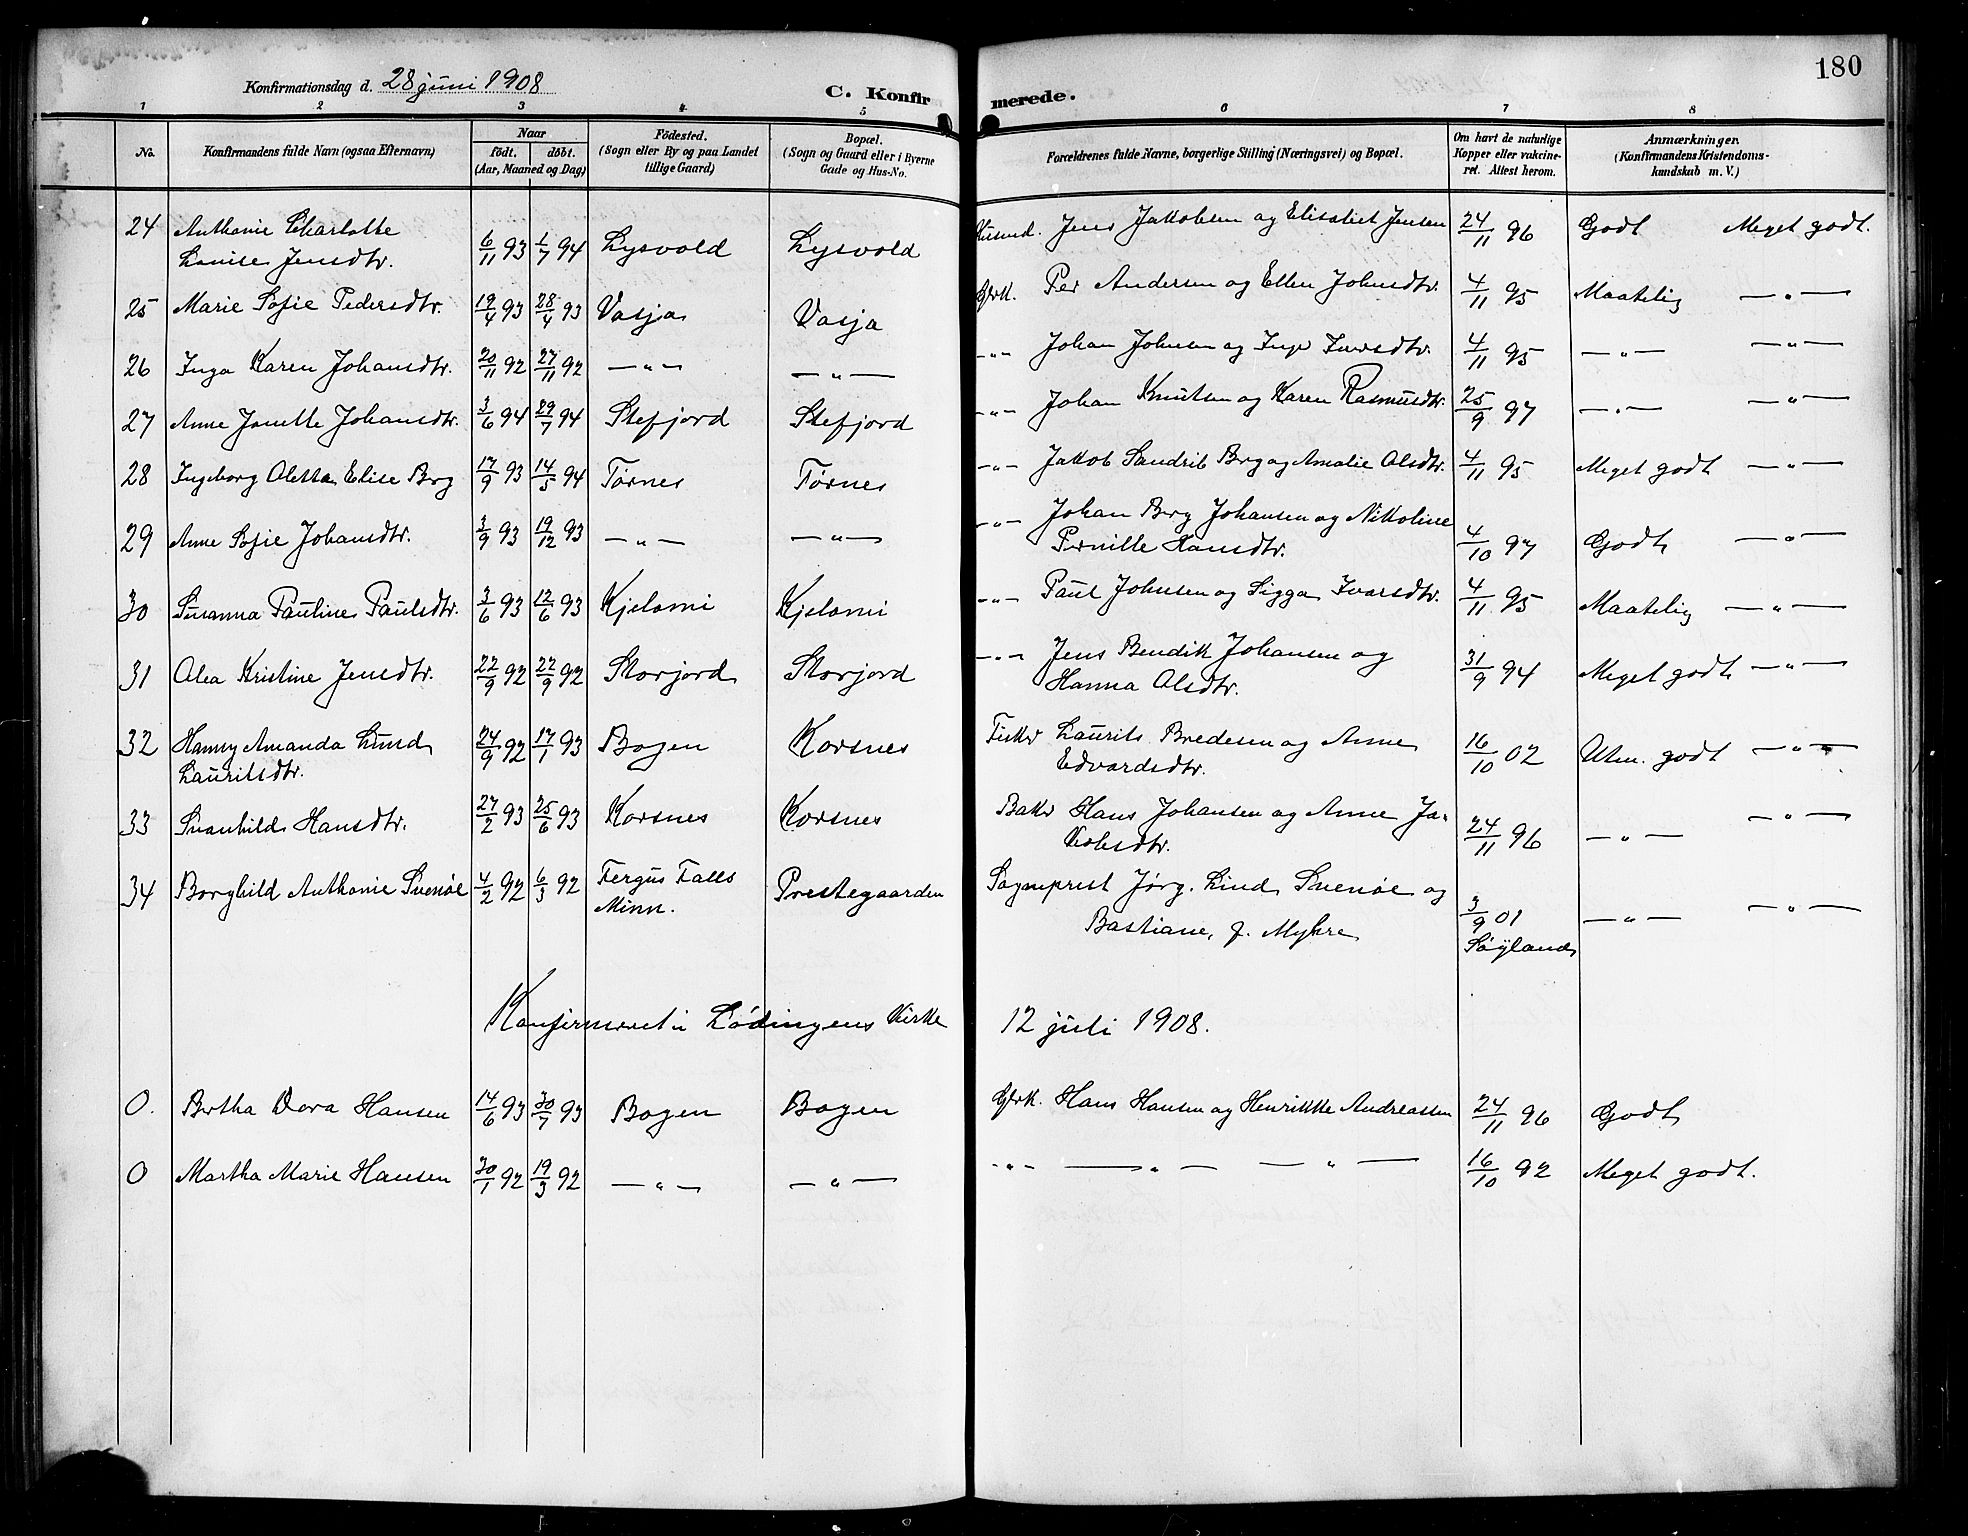 180
Konfirmationsdag d. 28 juni 1908
C. Konfirmerede.
1 2 3 4 5 6 7 8
No.
Konfirmandens fulde Navn (ogsaa Efternavn)
Naar
født. døbt.
(Aar, Maaned og Dag)
Födested.
(Sogn eller By og paa Landet
tillige Gaard)
Bopæl.
(Sogn og Gaard eller i Byerne
Gade og Hus-No.
Forældrenes fulde Navne, borgerlige Stilling (Næringsvei) og Bopæl.
Om havt de naturlige
Kopper eller vakcine-
ret. Attest herom.
Anmærkninger.
(Konfirmandens Kristendoms-
kundskab m. V.)
24 Anthonie Charlotte
Louise Jensdtr. 6/11 93 1/7 94 Lysvold Lysvold Husmd. Jens Jakobsen og Elisabet Jensen 24/11 96 Godt Meget godt.
25 Marie Sofie Pedersdtr. 19/4 93 28/4 93 Vasja Vasja Grk. Per Andersen og Ellen Johnsdtr. 4/11 95 Maatelig — " —
26 Inga Karen Johansdtr. 20/11 92 27/11 92 — " — — " — - " - Johan Johnsen og Inger Iversdtr. 4/11 95 — " — — " —
27 Anne Janette Johansdtr. 3/6 94 29/7 94 Stefjord Stefjord - " - Johan Knutsen og Karen Rasmusdtr. 25/9 97 — " — — " —
28 Ingeborg Aletta Elise Berg 17/9 93 14/5 94 Tørnes Tørnes - " - Jakob Sandrib Berg og Amalie Olsdtr. 4/11 95 Meget godt — " —
29 Anne Sofie Johansdtr. 3/9 93 19/12 93 — " — — " — - " - Johan Berg Johansen og Nikoline
Pernille Hansdtr. 4/10 97 Godt — " —
30 Susanna Pauline Paulsdtr. 3/6 93 12/6 93 Kjelomi Kjelomi - " - Paul Johnsen og Sigga Ivarsdtr. 4/11 95 Maatelig — " —
31 Alea Kristine Jensdtr. 22/9 92 22/9 92 Storjord Storjord - " - Jens Bendik Johansen og
Hanna Olsdtr. 31/9 94 Meget godt — " —
32 Hanny Amanda Lund
Lauritsdtr. 24/9 92 17/1 93 Bogen Korsnes Fisker Laurits Bredesen og Anne
Edvardsdtr. 16/10 02 Uten. godt — " —
33 Svanhild Hansdtr. 27/2 93 25/6 93 Korsnes Korsnes Baker Hans Johansen og Anne Ja-
kobsdtr. 24/11 96 — " — — " —
34 Borghild Anthonie Svenøe 4/2 92 6/3 92 Fergus Falls
Minn. Prestegaarden Sogneprest Jørg. Lind Svenøe og
Bastiane, f. Myhre 3/9 01
Søyland — " — — " —
Konfirmeret i Lødingens Kirke 12 juli 1908.
0. Bertha Dora Hansen 14/6 93 30/7 93 Bogen Bogen Grk. Hans Hansen og Henrikke Andreassen 24/11 96 Godt
0 Martha Marie Hansen 30/1 92 19/3 92 — " — — " — - " - — " — — " — 16/10 92 Meget godt.